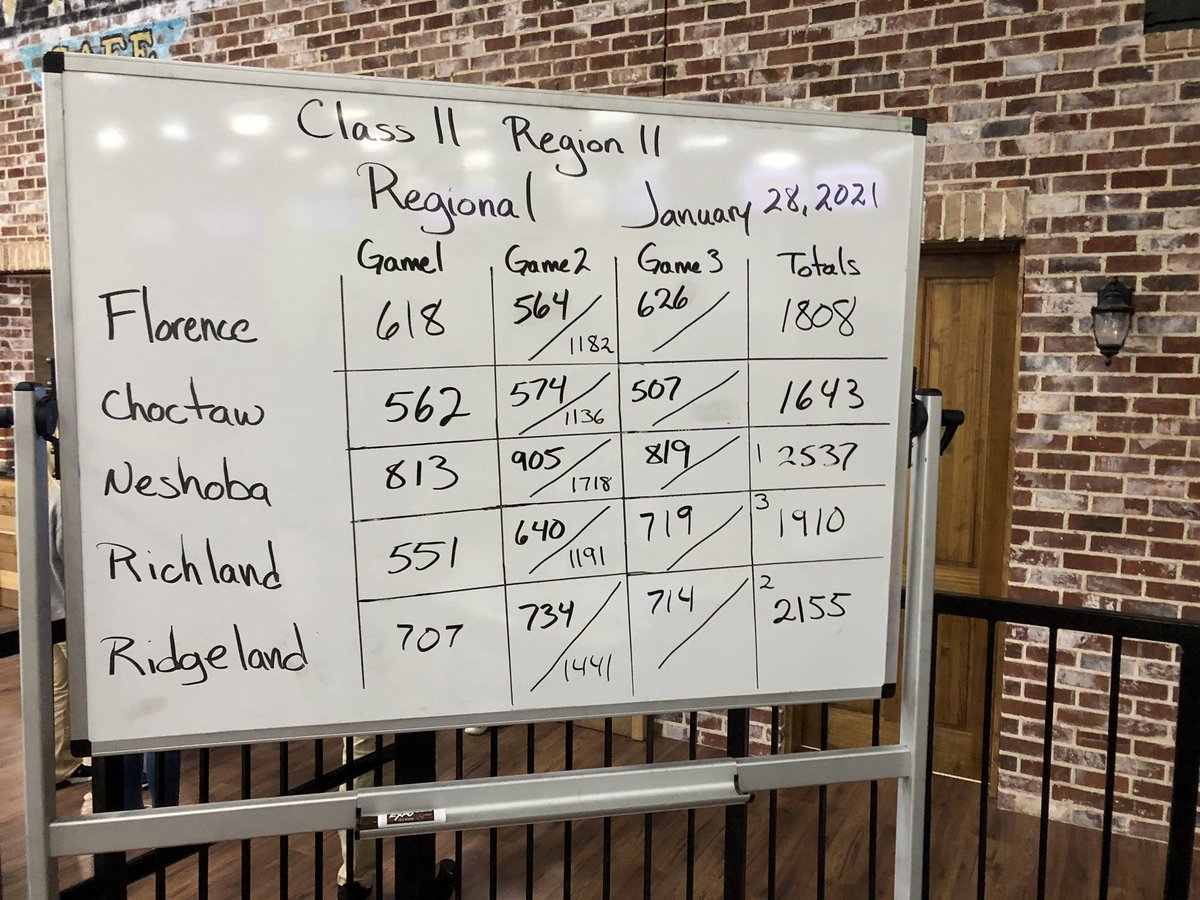 CAFE
Class II Region II
Regional January 28, 2021
Game1 Game2 Game 3 Totals
Florence 618 564/1182 626/ 1808
Choctaw 562 574/1136 507/ 1643
Neshoba 813 905/1718 819/ 1 2537
Richland 551 640/1191 719/ 3 1910
Ridgeland 707 734/1441 714/ 2 2155
EXPO